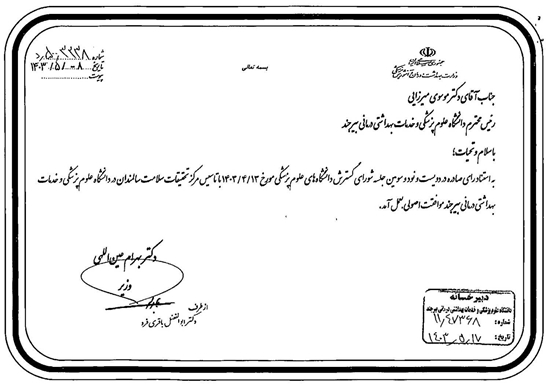 جمهوری اسلامی ایران
وزارت بهداشت، درمان و آموزش پزشکی
بسمه تعالی
شماره ۵۰۰/۳۲۳۸/د
تاریخ ۱۴۰۳/۰۵/۰۸
پیوست
جناب آقای دکتر موسوی میرزایی
رئیس محترم دانشگاه علوم پزشکی و خدمات بهداشتی درمانی بیرجند
با سلام و تحیات؛
به استناد رای صادره در دویست و نود و سومین جلسه شورای گسترش دانشگاه‌های علوم پزشکی مورخ ۱۴۰۳/۴/۱۳ با تاسیس مرکز تحقیقات سلامت سالمندان در دانشگاه علوم پزشکی و خدمات
بهداشتی درمانی بیرجند موافقت اصولی بعمل آمد.
دکتر بهرام عین‌اللهی
وزیر
از طرف
دکتر ابوالفضل باقری فرد
دبیرخانه
دانشگاه علوم پزشکی و خدمات بهداشتی درمانی بیرجند
شماره: ۱۱/۴۷۳۶۸
تاریخ: ۱۴۰۳/۰۵/۱۷